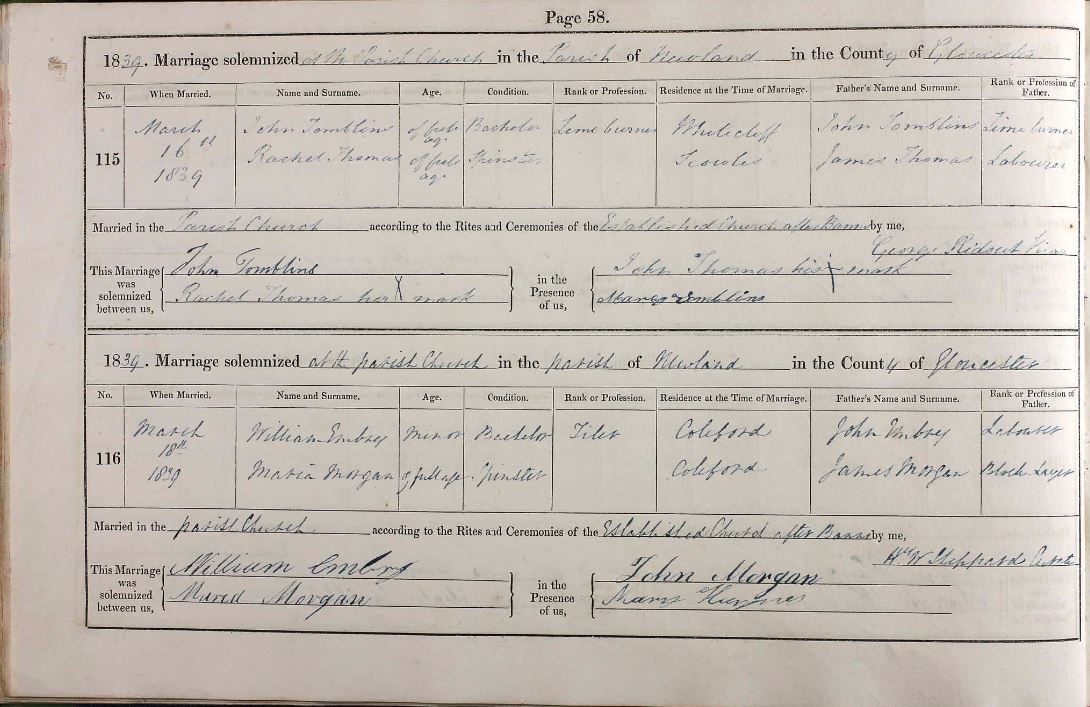 Page 58.
1839. Marriage solemnized at the Parish Church in the Parish of Newland in the County of Gloucester
No. When Married. Name and Surname. Age. Condition. Rank or Profession. Residence at the Time of Marriage. Father's Name and Surname. Rank or Profession of Father.
115 March 16th 1839 John Tomblins of full age Bachelor Lime burner Whitecliff John Tomblins Lime burner
Rachel Thomas of full age Spinster Scowles James Thomas Labourer
Married in the Parish Church according to the Rites and Ceremonies of the Established Church after Banns by me,
George Ridout Vicar
This Marriage was solemnized between us, John Tomblins in the Presence of us, John Thomas his X mark
Rachel Thomas her X mark Tomblins
1839. Marriage solemnized at the parish Church in the parish of Newland in the County of Gloucester
No. When Married. Name and Surname. Age. Condition. Rank or Profession. Residence at the Time of Marriage. Father's Name and Surname. Rank or Profession of Father.
116 March 18th 1839 William Embrey Minor Bachelor Tiler Coleford John Embrey Labourer
Maria Morgan of full age Spinster Coleford James Morgan
Married in the parish Church according to the Rites and Ceremonies of the Established Church after Banns by me,
Curate
This Marriage was solemnized between us, William Embry in the Presence of us, John Morgan
Morgan